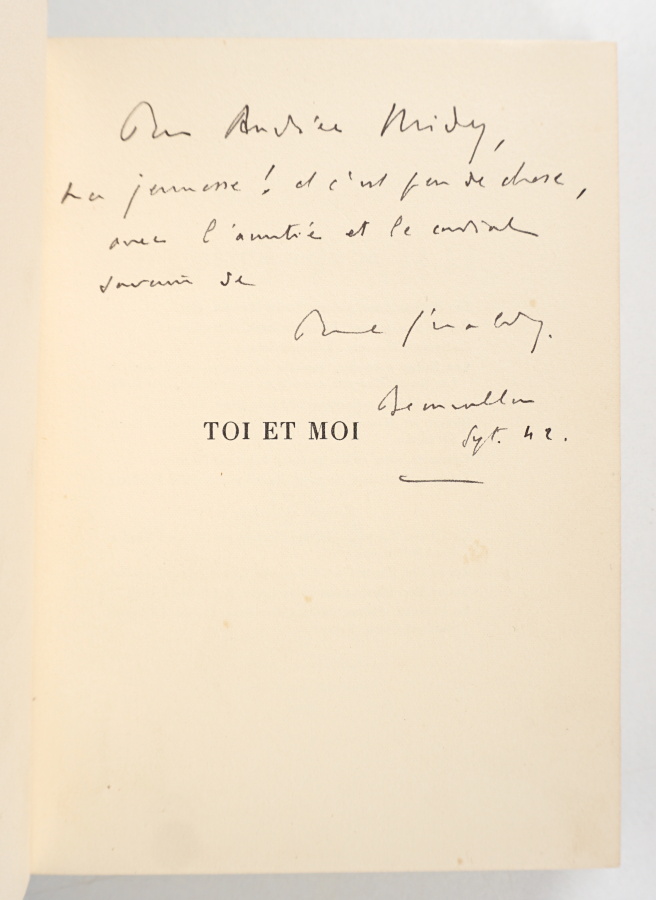 Pour Andrée Midy,
ma jeunesse ! et c'est peu de chose,
avec l'amitié et le cordial
souvenir de
Paul Géraldy.
Beauvallon
Sept. 42.
TOI ET MOI